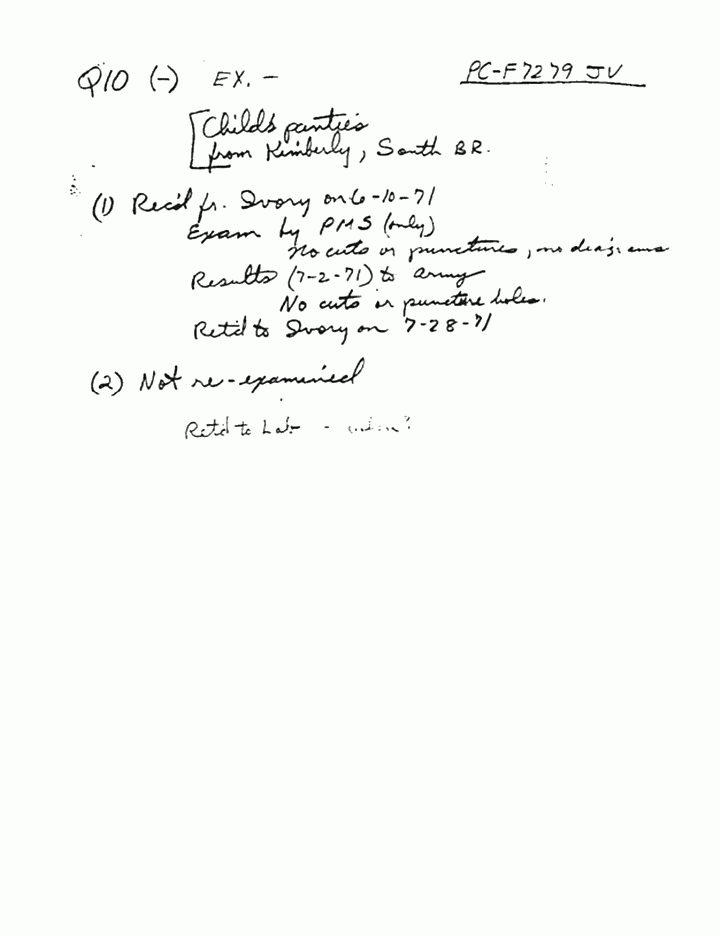 Q10 (-) EX. - PC-F7279 JV
[Childs panties
from Kimberly, South BR.
(1) Rec'd fr. Ivory on 6-10-71
Exam by PMS (only)
No cuts or punctures, no diagrams
Results (7-2-71) to army
No cuts or puncture holes.
Ret'd to Ivory on 7-28-71
(2) Not re-examined
Ret'd to Lab -